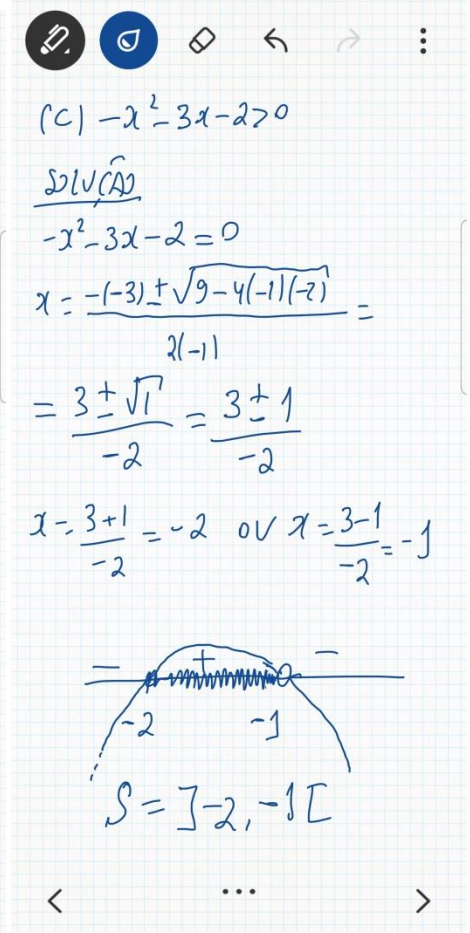 (c) -x²-3x-2>0
Solución
-x²-3x-2=0
x = -(-3)±√9-4(-1)(-2) / 2(-1) =
= 3±√1 / -2 = 3±1 / -2
x = 3+1 / -2 = -2 ov x = 3-1 / -2 = -1
- + -
-2 -1
S = ]-2,-1[